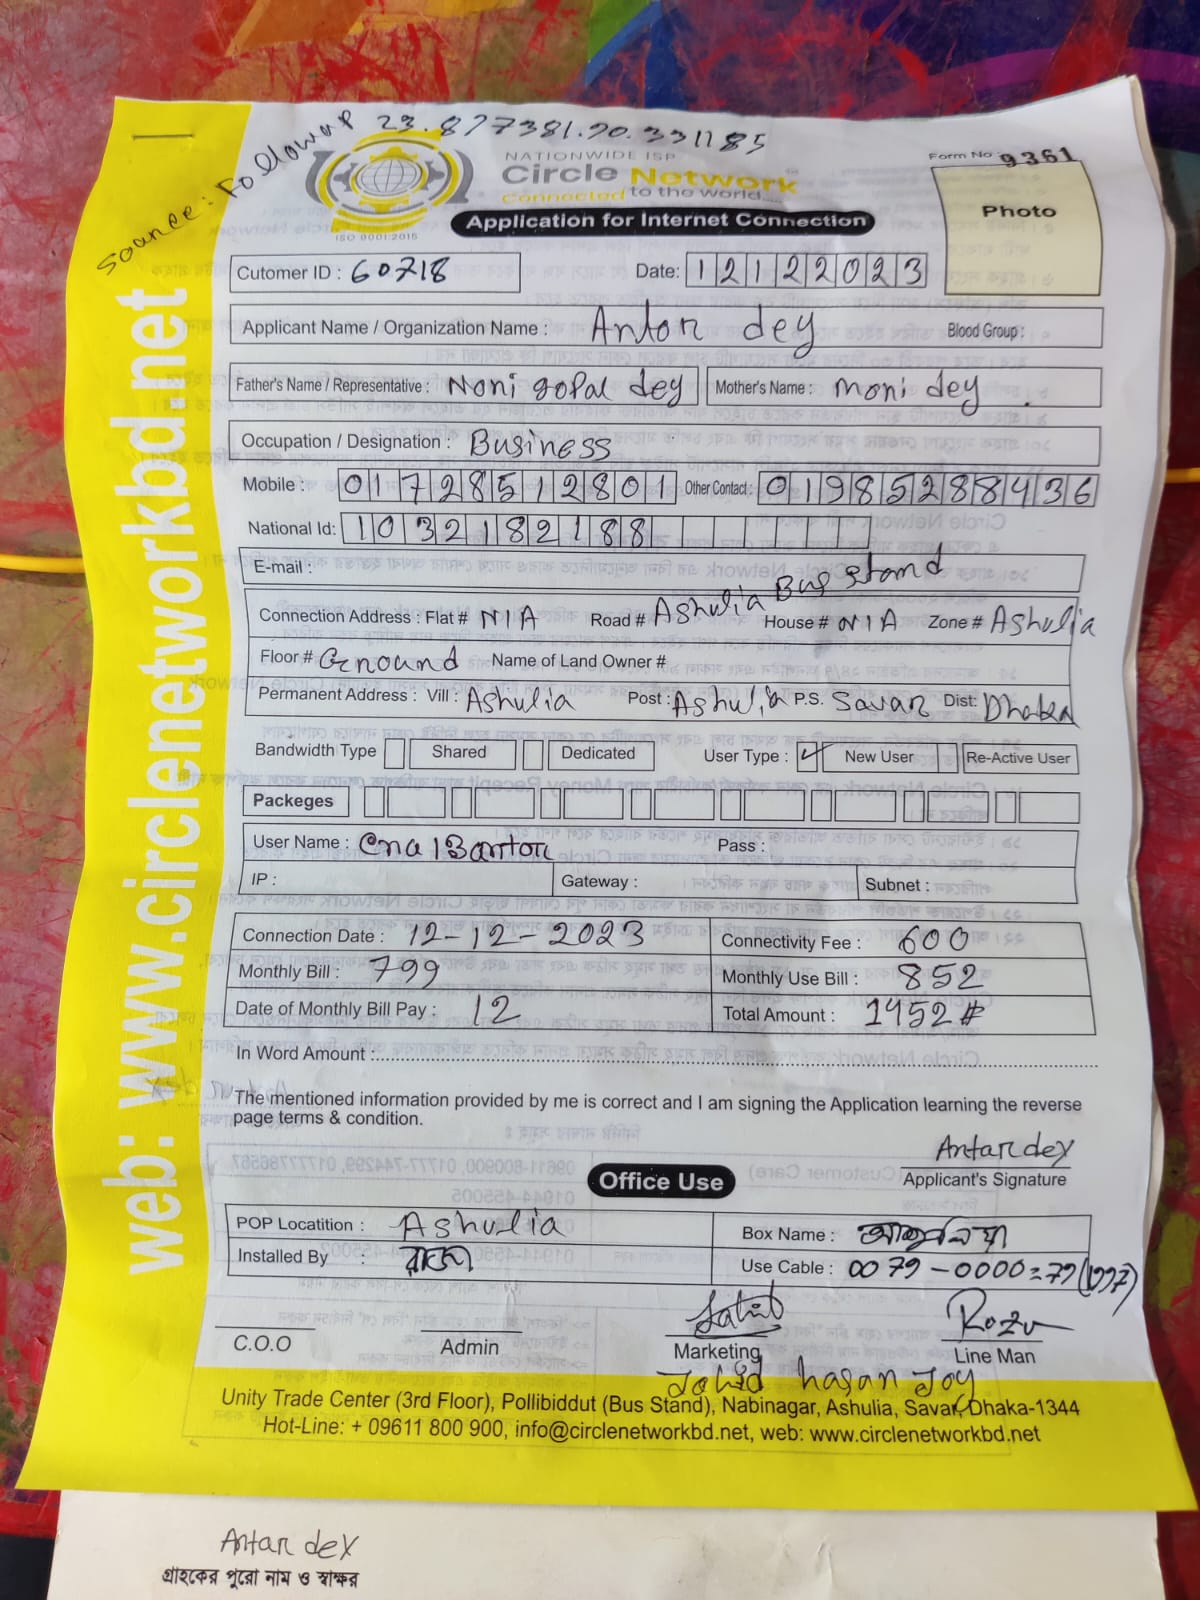 Soance: Followap 23.877381.90.331185
NATIONWIDE ISP
Circle Network
Connected to the world.....
ISO 9001:2015
Application for Internet Connection
Form No : 9361
Photo
Cutomer ID : 60718
Date: 12122023
Applicant Name / Organization Name : Antor dey Blood Group :
Father's Name / Representative : Noni gopal dey Mother's Name : moni dey
Occupation / Designation : Business
Mobile : 01728512801 Other Contact : 01985288436
National Id: 1032182188
E-mail :
Connection Address : Flat # N/A Road # Ashulia Bus stand House # N/A Zone # Ashulia
Floor # Ground Name of Land Owner #
Permanent Address : Vill : Ashulia Post : Ashulia P.S. Savar Dist: Dhaka
Bandwidth Type Shared Dedicated User Type : ✓ New User Re-Active User
Packeges
User Name : Pass :
IP : Gateway : Subnet :
Connection Date : 12-12-2023 Connectivity Fee : 600
Monthly Bill : 799 Monthly Use Bill : 852
Date of Monthly Bill Pay : 12 Total Amount : 1452#
In Word Amount :
The mentioned information provided by me is correct and I am signing the Application learning the reverse
page terms & condition.
Antar dey
Applicant's Signature
Office Use
POP Locatition : Ashulia Box Name : আশুলিয়া
Installed By : Use Cable : 0079-0000=79
Rozu
C.O.O Admin Marketing Line Man
Jahid hasan Joy
Unity Trade Center (3rd Floor), Pollibiddut (Bus Stand), Nabinagar, Ashulia, Savar, Dhaka-1344
Hot-Line: + 09611 800 900, info@circlenetworkbd.net, web: www.circlenetworkbd.net
web: www.circlenetworkbd.net
Antar dey
গ্রাহকের পুরো নাম ও স্বাক্ষর